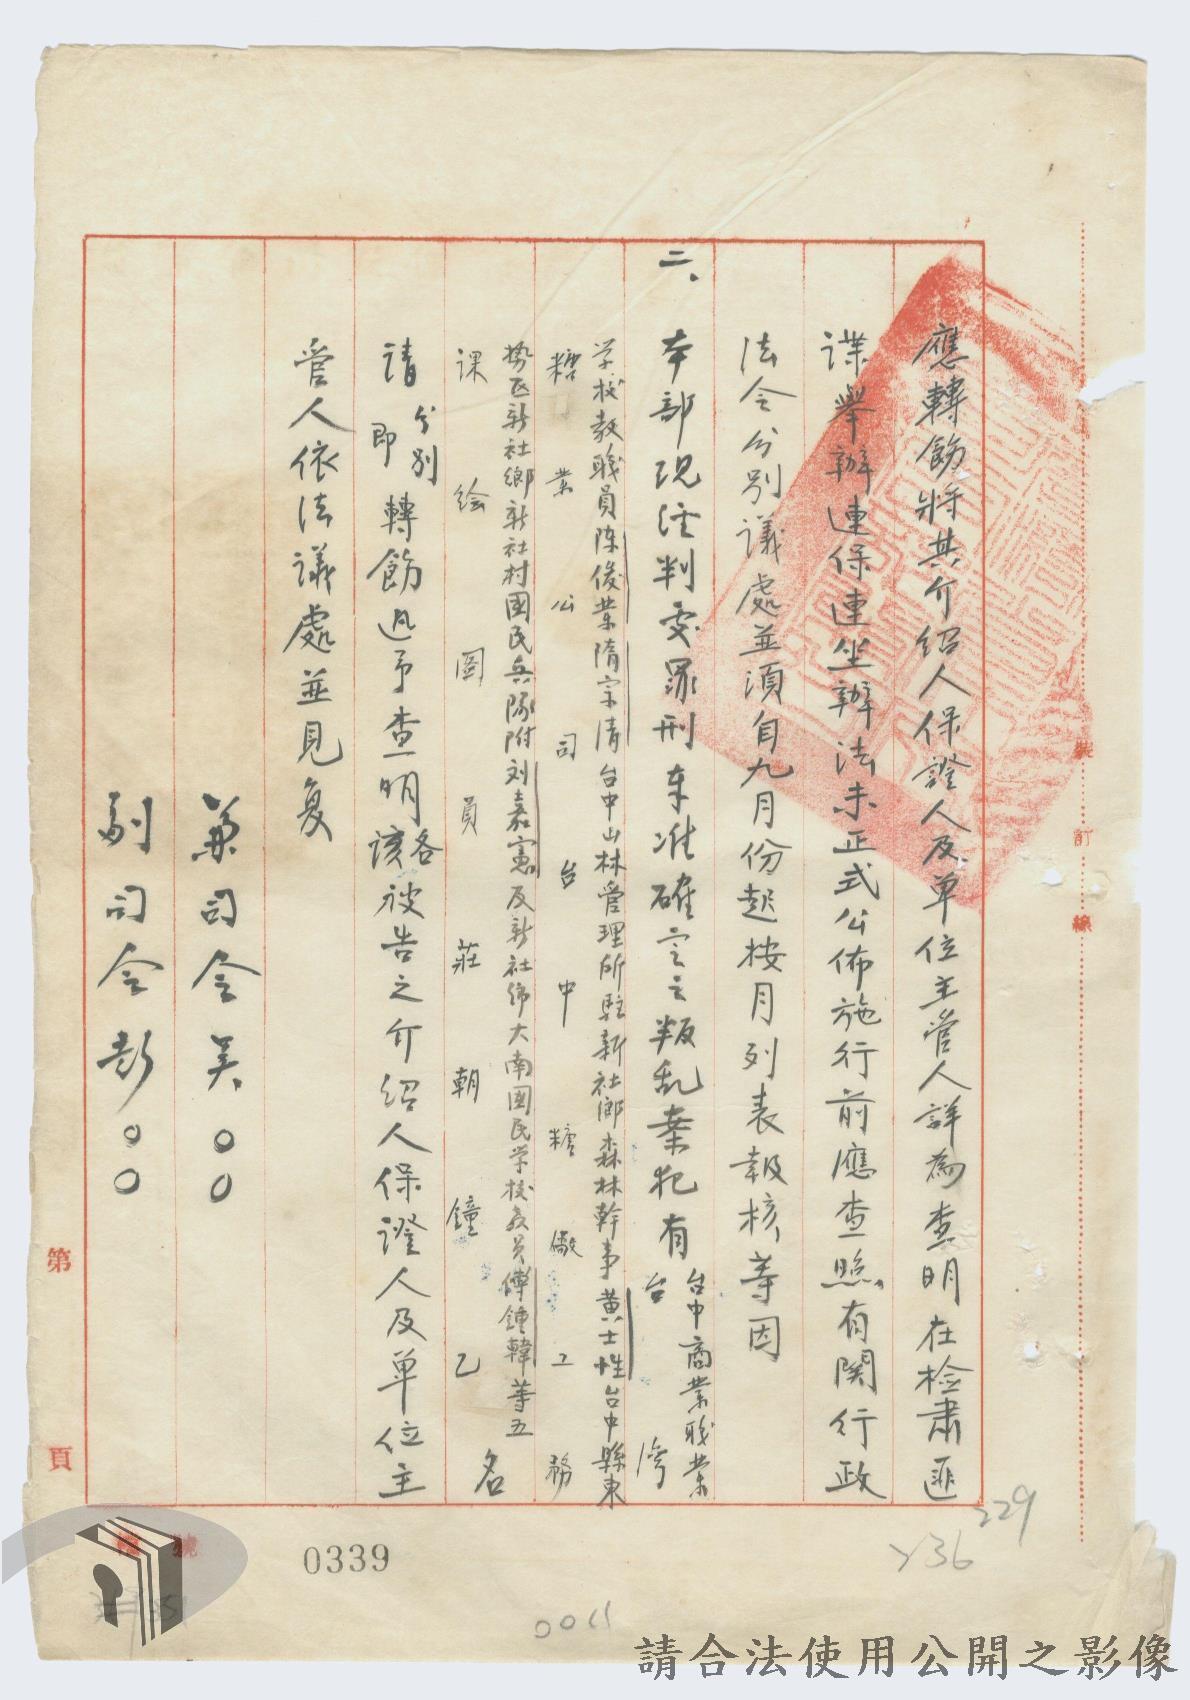 應轉飭將其介紹人保證人及單位主管人詳為查明在檢肅匪
諜舉辦連保連坐辦法未正式公佈施行前應查照有関行政
法令分別議處並須自九月份起按月列表報核等因
二、本部現經判處罪刑奉准確定之叛乱案犯有
台中商業職業
學校教職員陈俊業隋宗清台中山林管理所駐新社鄉森林幹事黃士性台中縣東
势区新社鄉新社村國民兵隊附刘嘉憲及新社鄉大南國民学校教員傅鍾韓等五
台灣
糖業公司台中糖廠工務
課绘图員莊朝鐘乙
名
請
分別
即
轉飭迅予查明
各
該
被告之介紹人保證人及單位主
管人依法議處並見复
兼司令吴○○
副司令彭○○
裝訂線
第
頁
檔號
0339
229
236
0011
請合法使用公開之影像